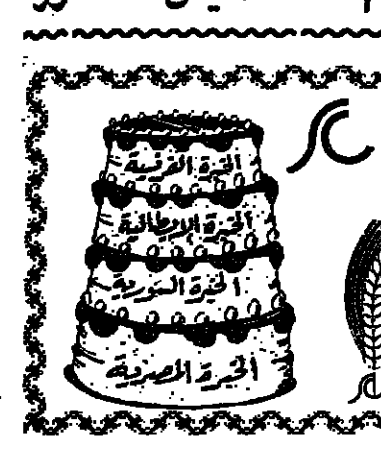 الخبرة الفرنسية
الخبرة الإيطالية
الخبرة السورية
الخبرة المصرية